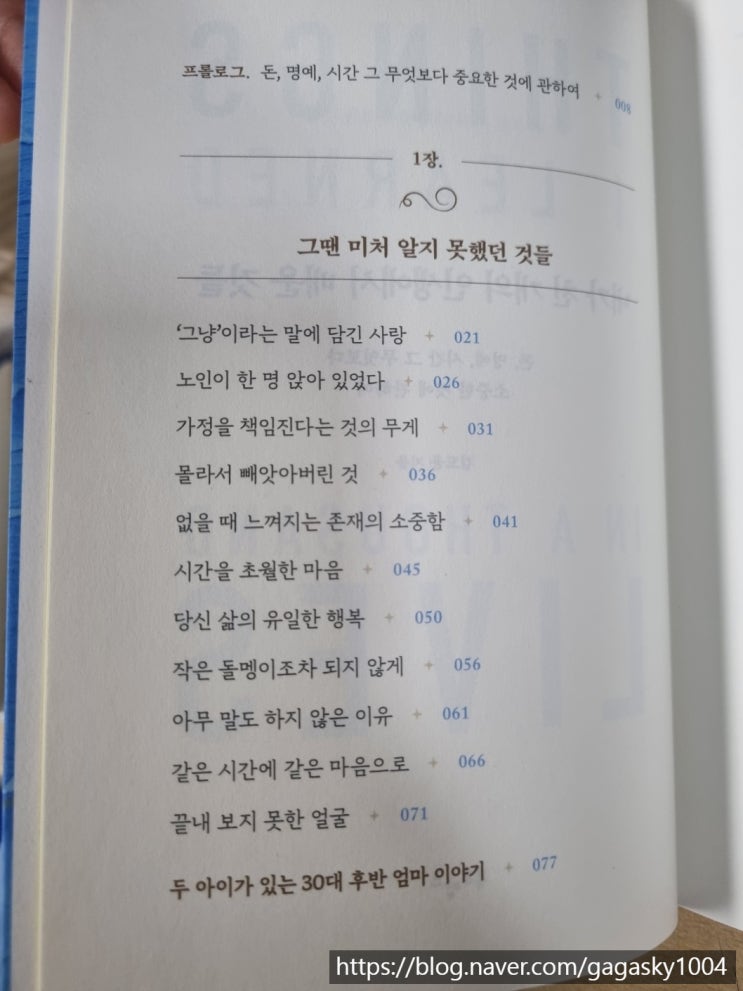 프롤로그. 돈, 명예, 시간 그 무엇보다 중요한 것에 관하여 008
1장.
그땐 미처 알지 못했던 것들
‘그냥’이라는 말에 담긴 사랑 021
노인이 한 명 앉아 있었다 026
가정을 책임진다는 것의 무게 031
몰라서 빼앗아버린 것 036
없을 때 느껴지는 존재의 소중함 041
시간을 초월한 마음 045
당신 삶의 유일한 행복 050
작은 돌멩이조차 되지 않게 056
아무 말도 하지 않은 이유 061
같은 시간에 같은 마음으로 066
끝내 보지 못한 얼굴 071
두 아이가 있는 30대 후반 엄마 이야기 077
https://blog.naver.com/gagasky1004